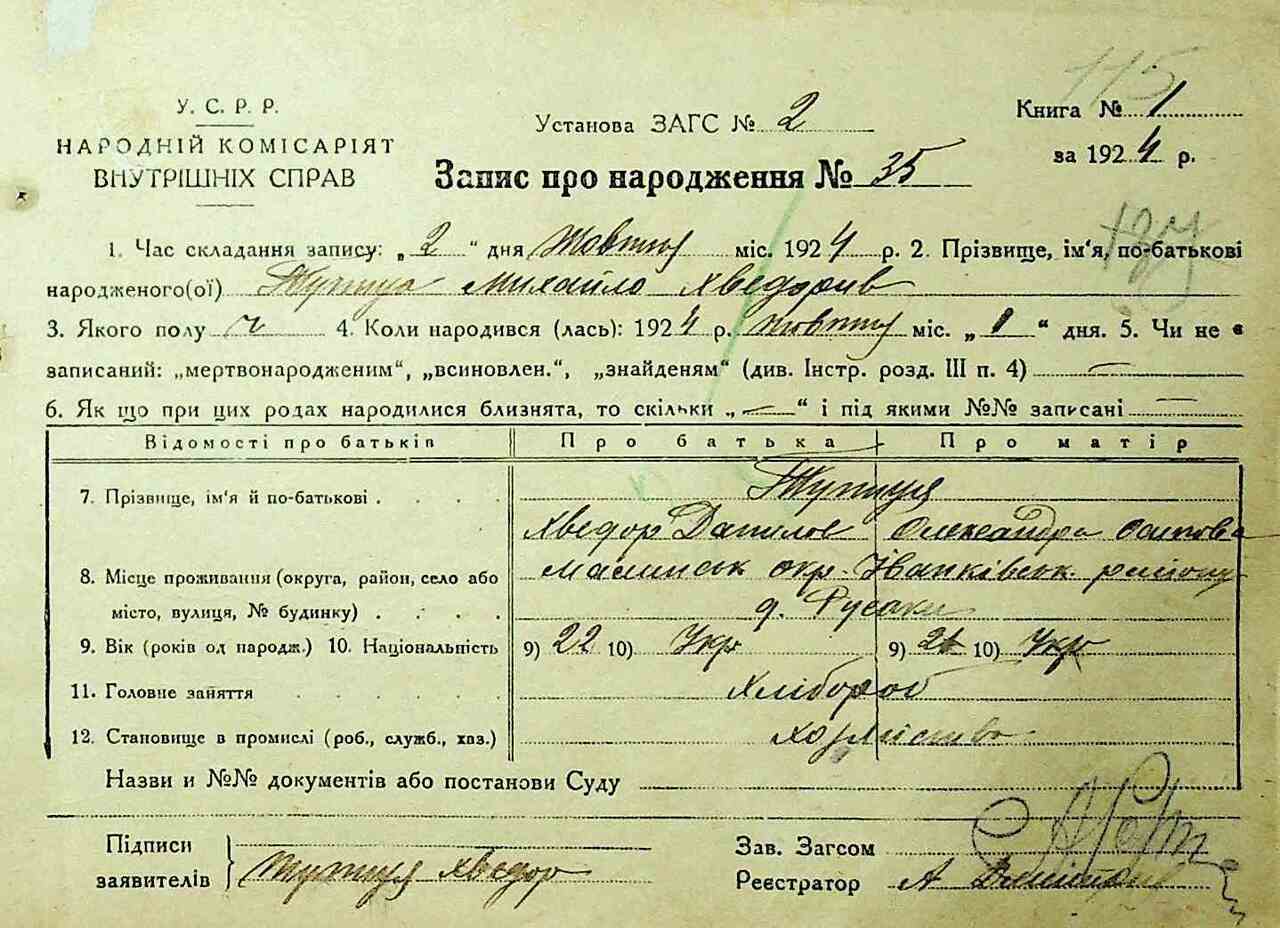 115
У. С. Р. Р.
НАРОДНІЙ КОМІСАРІЯТ
ВНУТРІШНІХ СПРАВ
Установа ЗАГС № 2
Книга № 1
за 1924 р.
Запис про народження № 35
1. Час складання запису: „2“ дня Жовтня міс. 1924 р. 2. Прізвище, ім'я, по-батькові
народженого(ої) Михайло Хведорив
3. Якого полу ч 4. Коли народився (лась): 1924 р. жовтня міс. „1“ дня. 5. Чи не є
записаний: „мертвонародженим“, „всиновлен.“, „знайденям“ (див. Інстр. розд. III п. 4) —
6. Як що при цих родах народилися близнята, то скільки „—“ і під якими №№ записані —
Відомості про батьків Про батька Про матір
7. Прізвище, ім'я й по-батькові . . . .
Хведор Данилов Олександра Осипова
8. Місце проживання (округа, район, село або
місто, вулиця, № будинку) . . . .
Малинськ окр. Іванківськ. району
д. Русаки
9. Вік (років од народж.) 10. Національність 9) 22 10) Укр 9) 21 10) Укр
11. Головне заняття . . . . . Хлібороб
12. Становище в промислі (роб., служб., хаз.) хозяйство
Назви и №№ документів або постанови Суду
Підписи
заявителів
Хведор
Зав. Загсом
Реєстратор А